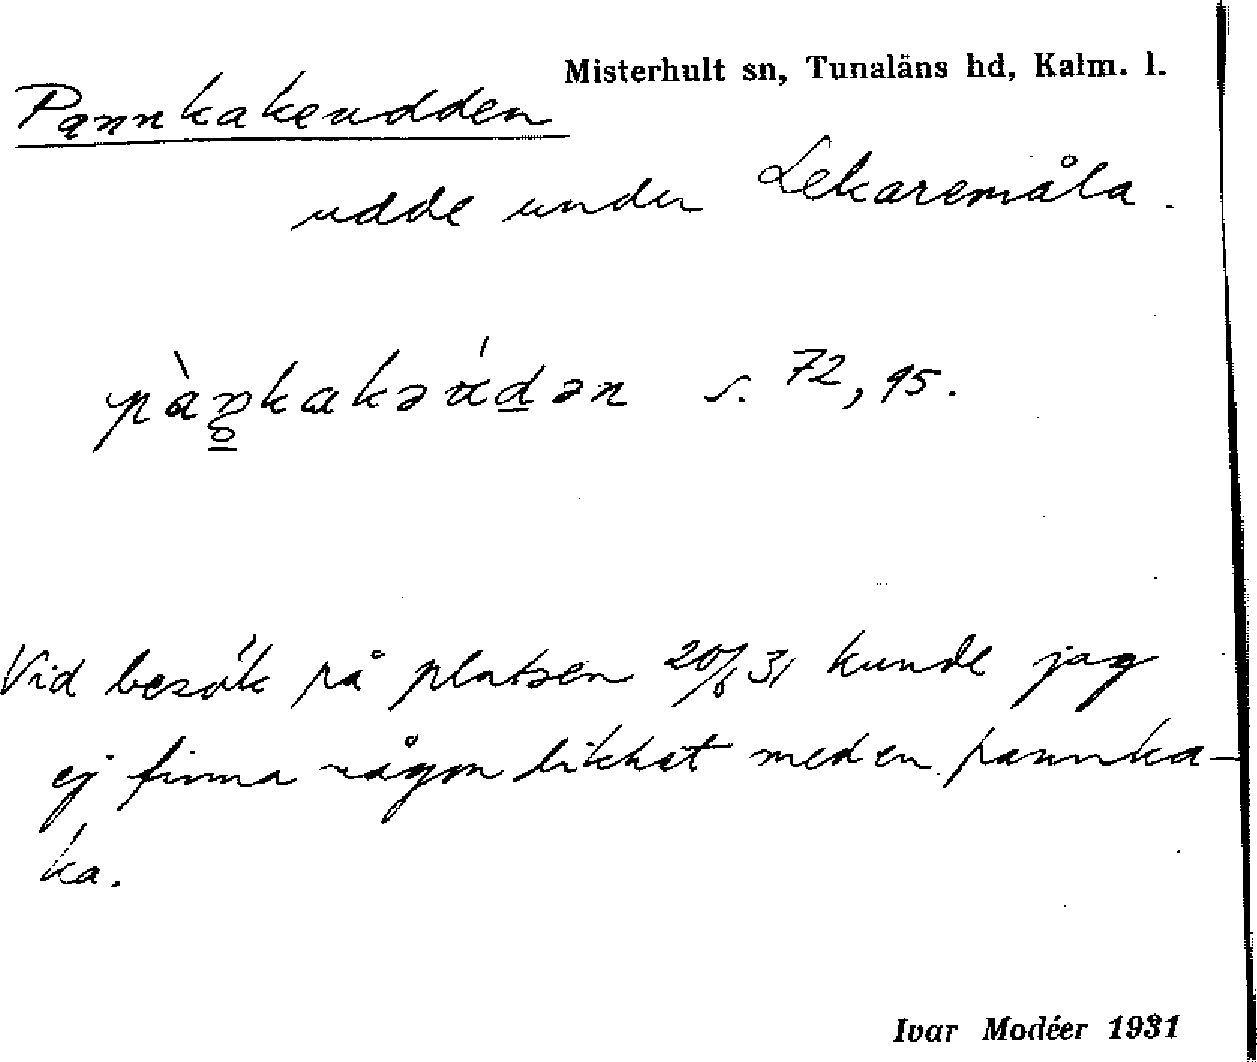 Misterhult sn, Tunaläns hd, Kalm. l.
Pannkakeudden
udde under Lekaremåla.
s. 72, 95.
Vid besök på platsen 20/8 31 kunde jag
ej finna någon likhet med en pannka-
ka.
Ivar Modéer 1931